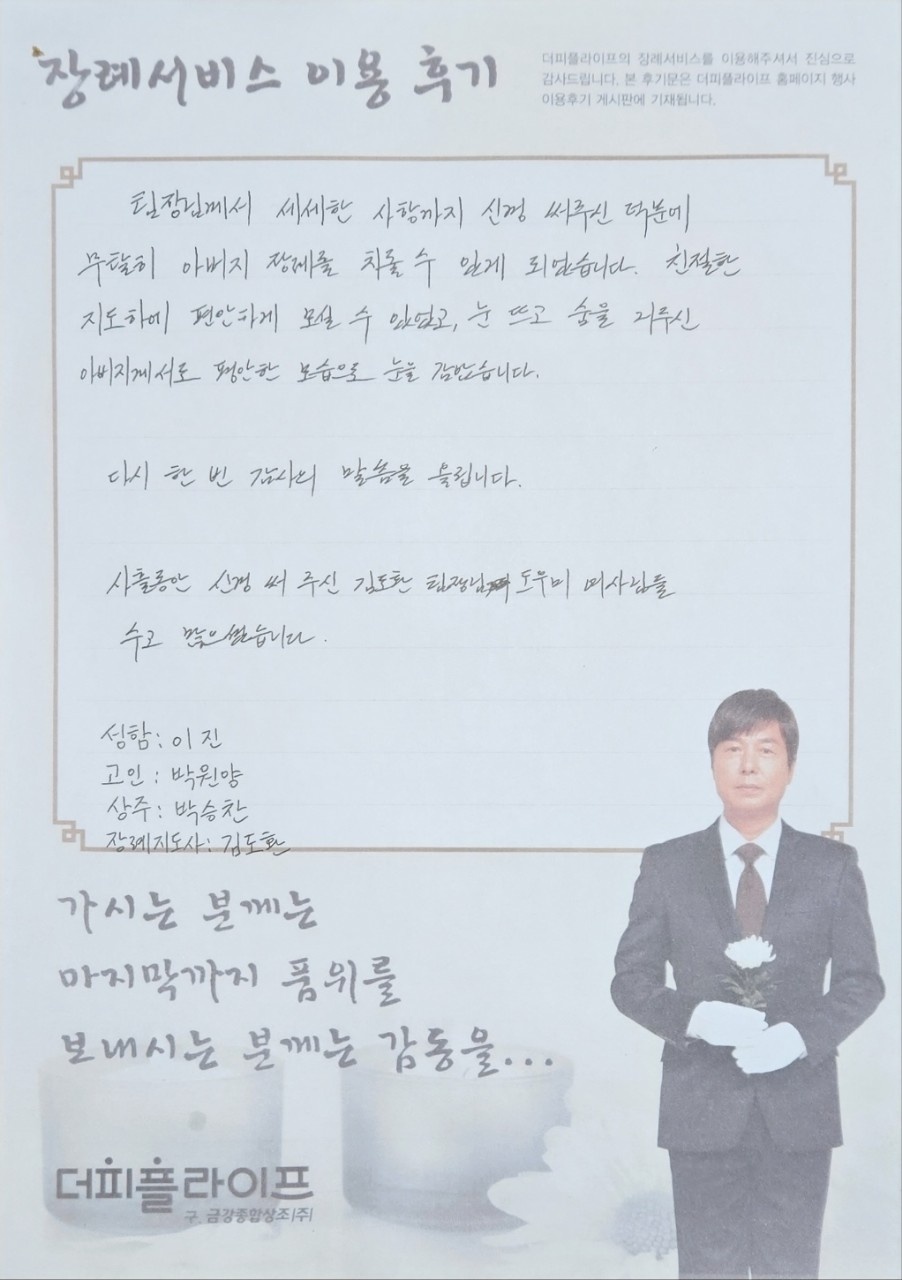 장례서비스 이용 후기
더피플라이프의 장례서비스를 이용해주셔서 진심으로
감사드립니다. 본 후기문은 더피플라이프 홈페이지 행사
이용후기 게시판에 기재됩니다.
팀장님께서 세세한 사항까지 신경 써주신 덕분에
무탈히 아버지 장례를 치룰 수 있게 되었습니다. 친절한
지도하에 편안하게 모실 수 있었고, 눈 뜨고 숨을 거두신
아버지께서도 평안한 모습으로 눈을 감았습니다.
다시 한 번 감사의 말씀을 올립니다.
사흘동안 신경 써 주신 김도환 팀장님 도우미 여사님들
수고 많으셨습니다.
성함: 이진
고인: 박원양
상주: 박승찬
장례지도사: 김도환
가시는 분께는
마지막까지 품위를
보내시는 분께는 감동을...
더피플라이프
구. 금강종합상조(주)